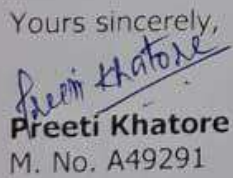 Yours sincerely,
Preeti Khatore
Preeti Khatore
M. No. A49291